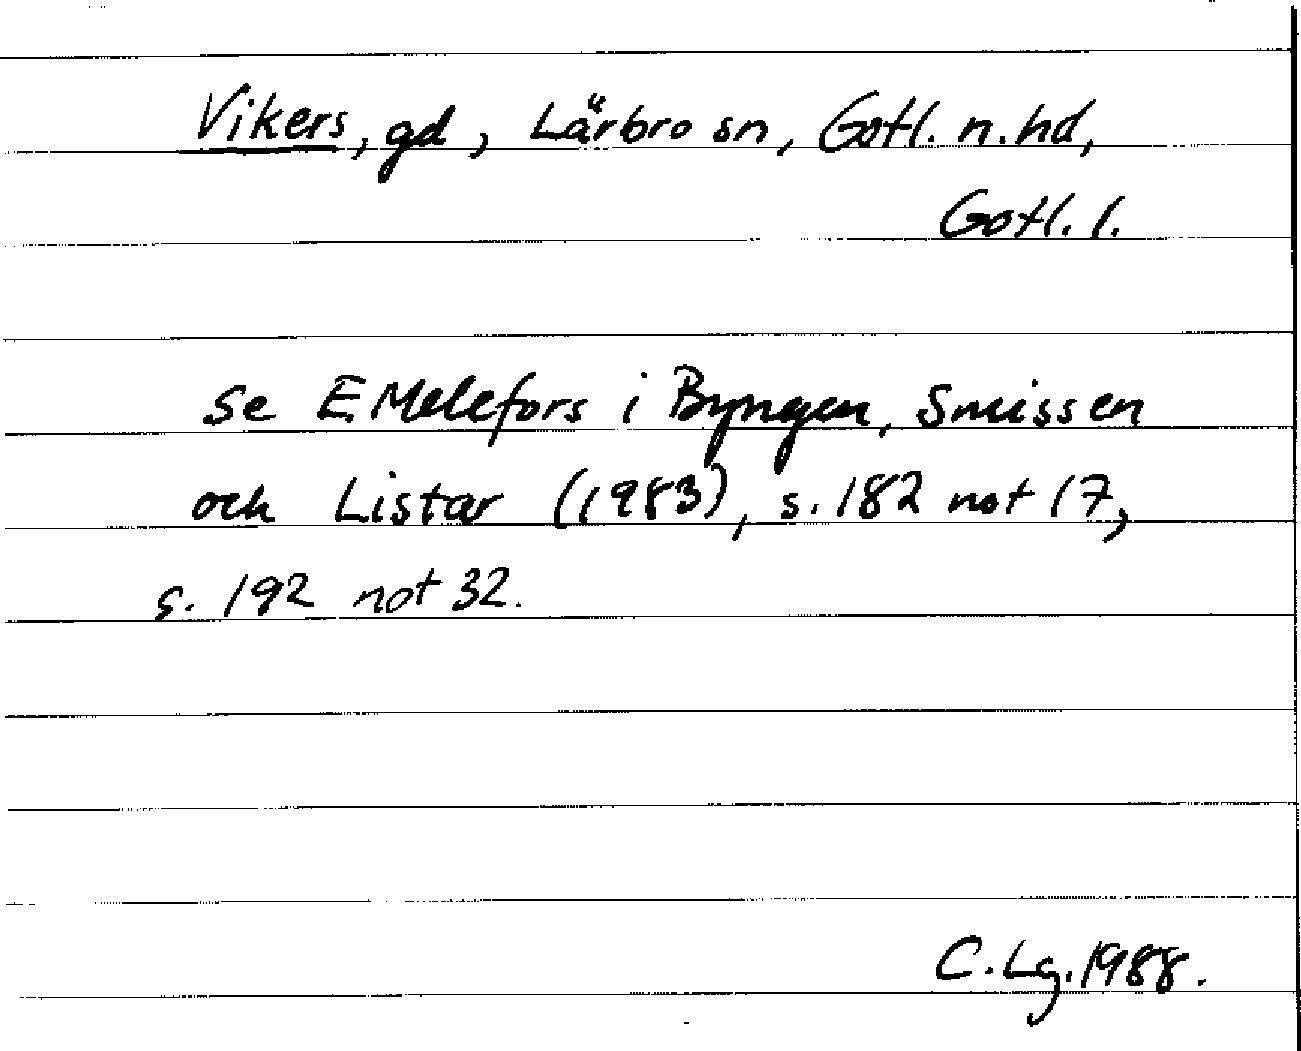 Vikers, gd, Lärbro sn, Gotl. n. hd,
Gotl. l.
Se E Melefors i Byngen, Smissen
och Listar (1983), s. 182 not 17,
s. 192 not 32.
C. Lg. 1988.